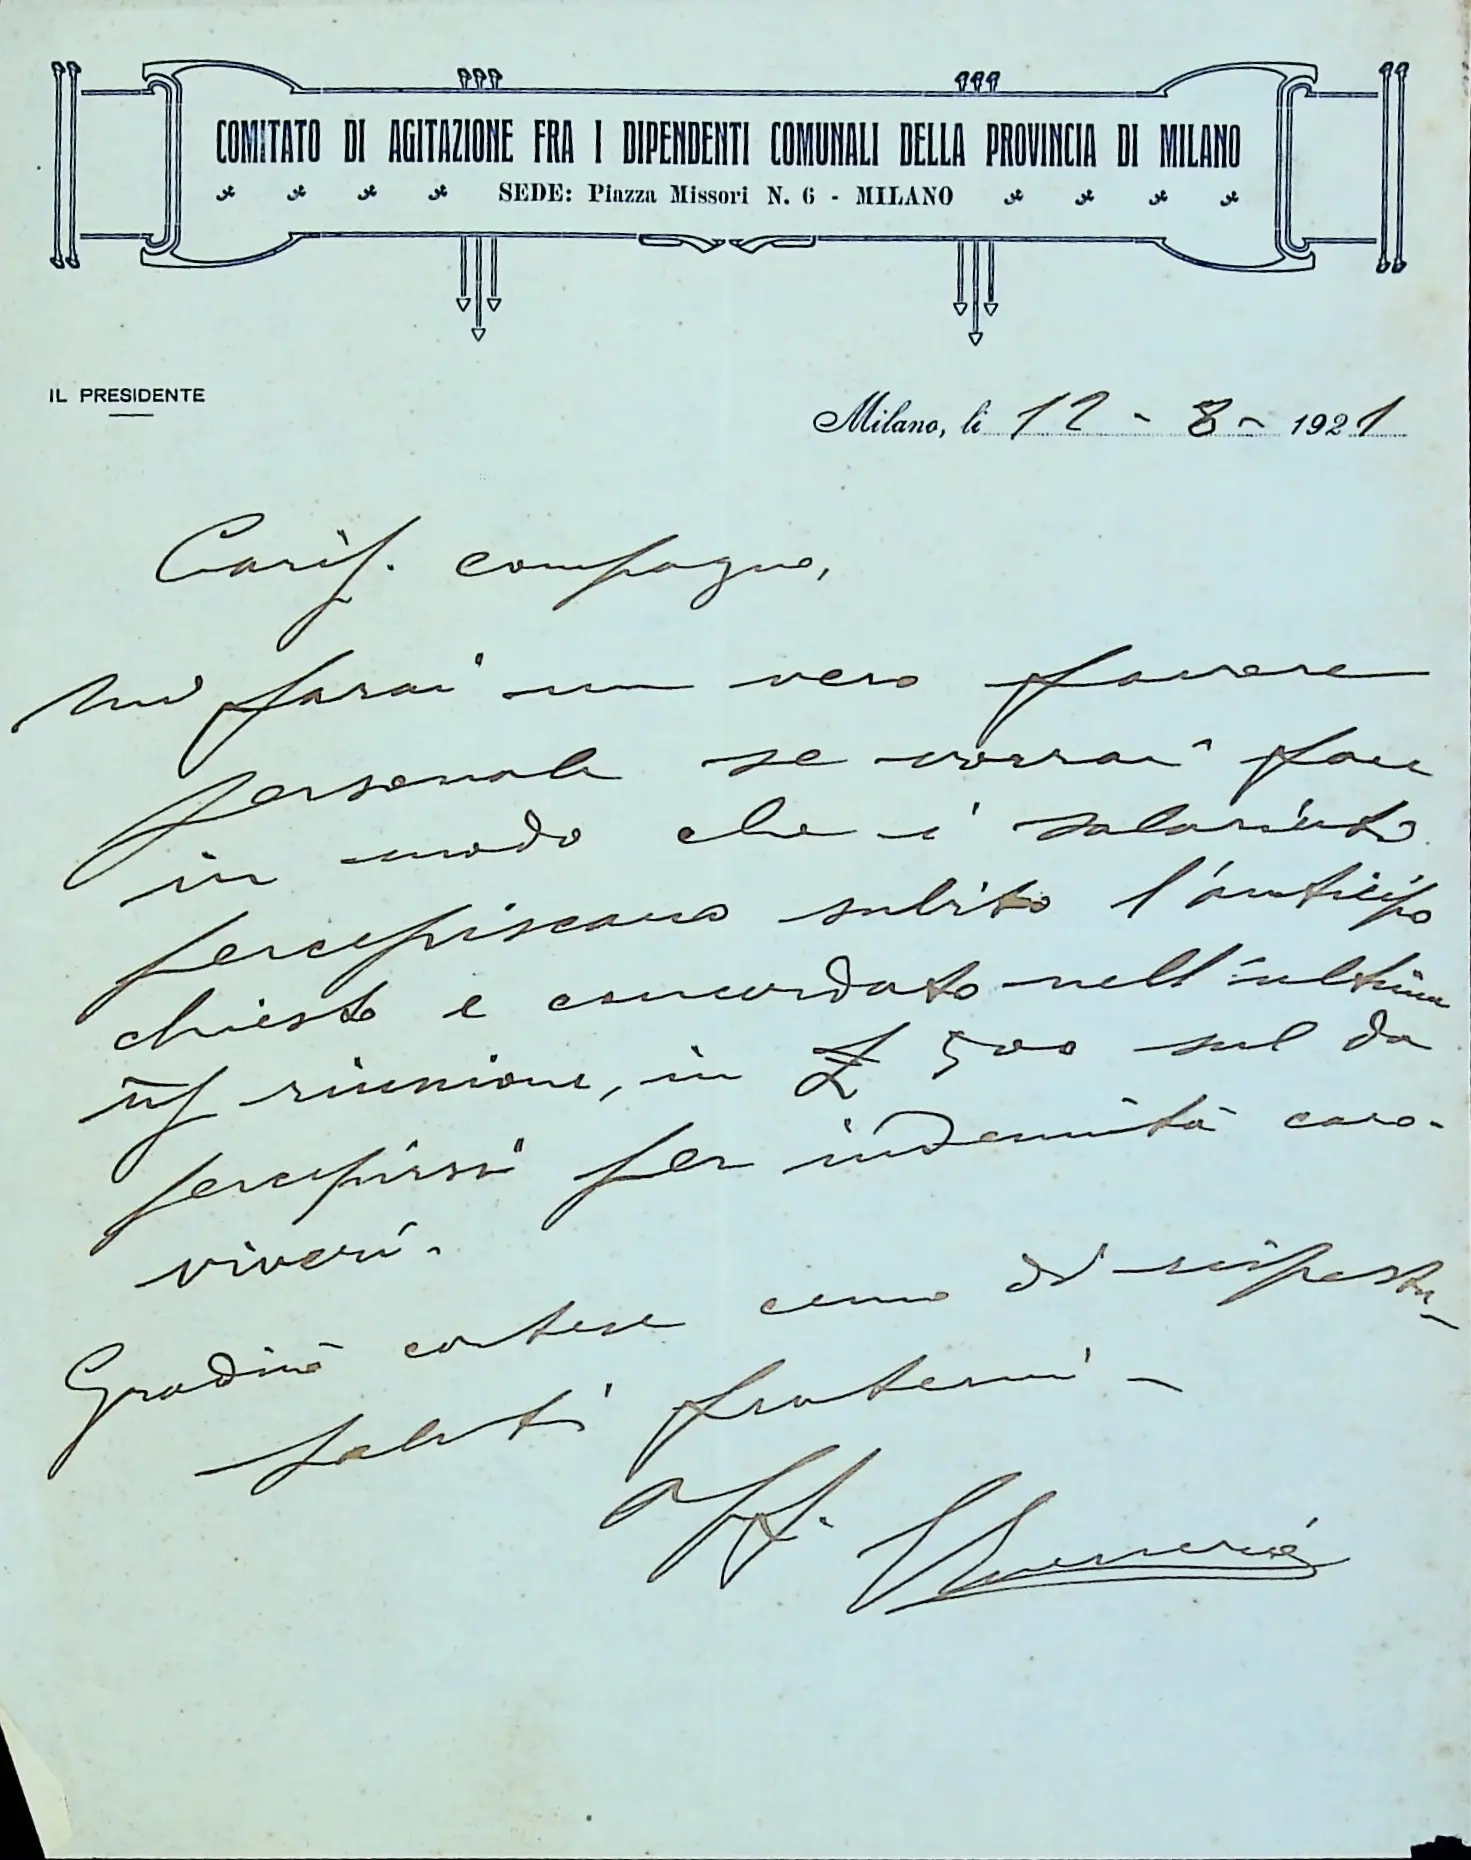 COMITATO DI AGITAZIONE FRA I DIPENDENTI COMUNALI DELLA PROVINCIA DI MILANO
SEDE: Piazza Missori N. 6 - MILANO
IL PRESIDENTE
Milano, li 12 - 8 - 1921
Cariss. compagno,
mi farai un vero favore
personale se vorrai fare
in modo che i salariati
percepiscano subito l'anticipo
chiesto e concordato nell'ultima
ns/ riunione, in £ 500 sul da
percepirsi per indennità caro-
viveri.
Gradirò cortese cenno di risposta -
Saluti fraterni -
aff.